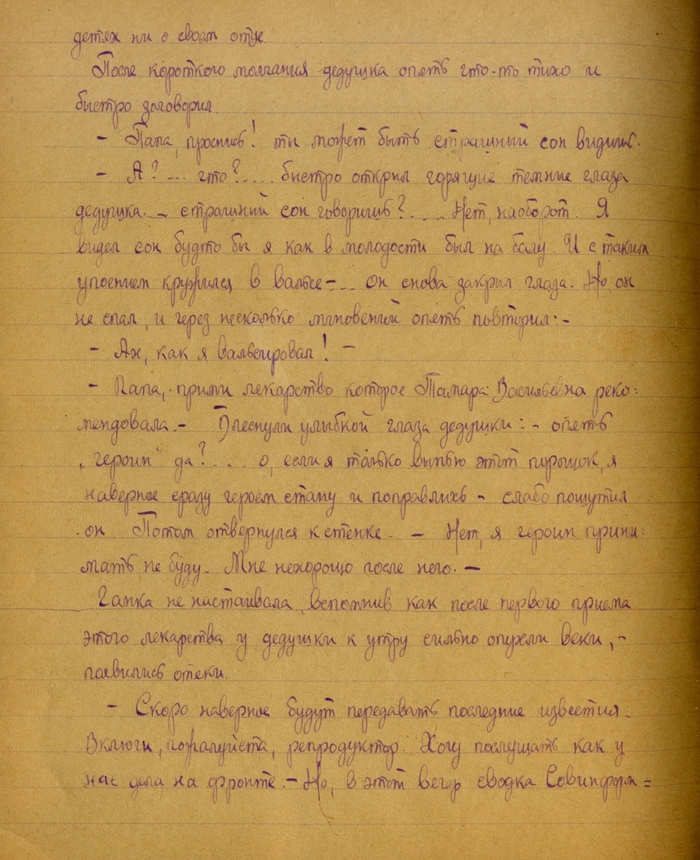 детях ни о своем отце.
После короткого молчания дедушка опять что-то тихо и
быстро заговорил.
— Папа, проснись! ты может быть страшный сон видишь.
— А?.... что?.... быстро открыл горящие темные глаза
дедушка. — страшный сон говоришь?.... Нет, наоборот. Я
видел сон будто бы я как в молодости был на балу. И с таким
упоением кружился в вальсе—... он снова закрыл глаза. Но, он
не спал, и через несколько мгновений опять повторил:-
— Ах, как я вальсировал! —
— Папа, прими лекарство которое Тамара Васильевна реко-
мендовала.— Блеснули улыбкой глаза дедушки: - опять
„героин" да?.... о, если я только выпью этот порошок, я
наверное сразу героем стану и поправлюсь - слабо пошутил
он. Потом отвернулся к стенке. — Нет, я героин прини=
мать не буду. Мне нехорошо после него. —
Галка не настаивала, вспомнив как после первого приема
этого лекарства у дедушки к утру сильно опухли веки, -
появились отеки.
— Скоро наверное будут передавать последние известия.
Включи, пожалуйста, репродуктор. Хочу послушать как у
нас дела на фронте. — Но, в этот вечер сводка Совинформ=